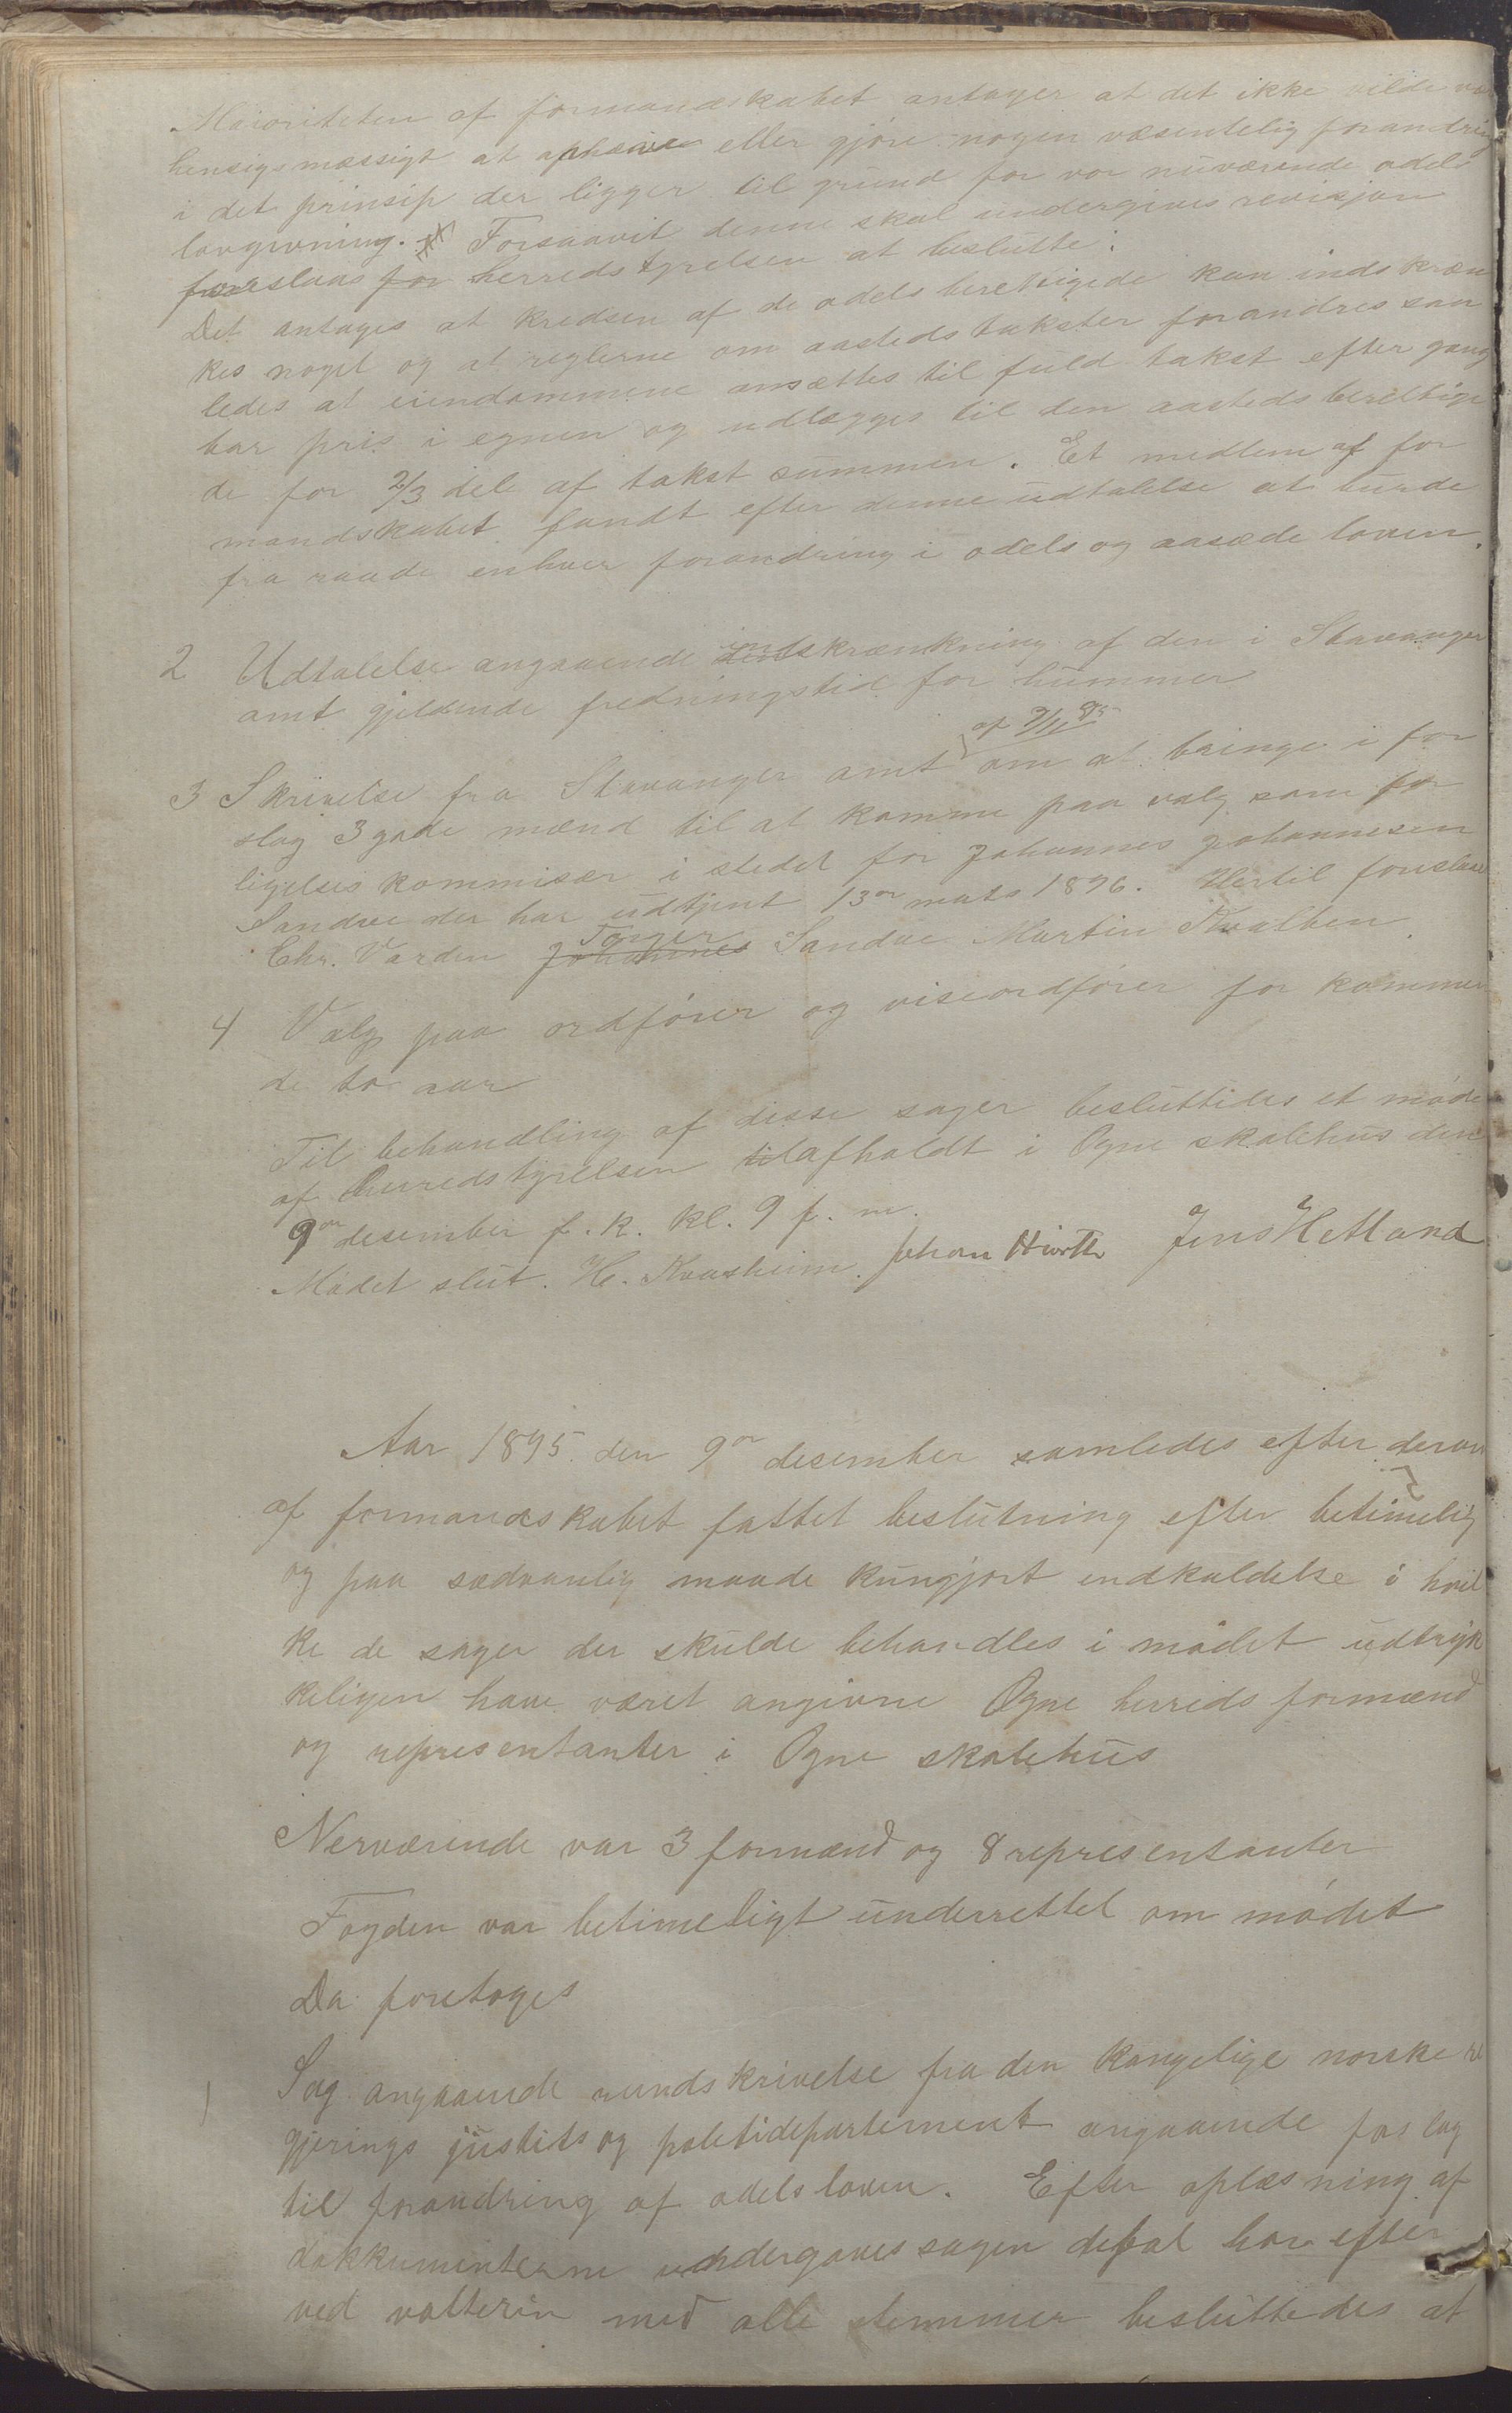 Majoriteten af formandskabet antager at det ikke vilde væ
hensigsmæssigt at ophæve eller gjøre nogen væsentelig forandring
i det prinsip der ligger til grund for vor nuværende odels
lovgivning. Forsaavit denne skal undergives revisjon
foreslaas for herredstyrelsen at beslutte:
Det antages at kredsen af de odelsberettigede kan indskræn
kes noget og at reglerne om aastedstakster forandres saa
ledes at eiendommene ansættes til fuld takst efter gang
bar pris i egnen og udlægges til den aastedsberettige
de for 2/3 dele af takst summen. Et medlem af for
mandskabet fandt efter denne udtalelse at burde
fra raade enhver forandring i odels og aasæde loven.
2 Udtalelse angaaende indskrænkning af den i Stavanger
amt gjeldende fredningstid for hummer
af 7/11 95
3 Skrivelse fra Stavanger amt om at bringe i for
slag 3 gode mænd til at komme paa valg som for
ligelses kommisær i stedet for Johannes Johannesen
Sandve der har udtjent 13de mats 1896. Hertil foreslaaes
Chr. Varden Johannes Tønger Sandve Martin Kvalben.
4 Valg paa ordfører og viseordfører for kommen
de to aar
Til behandling af disse sager besluttedes et møde
af herredstyrelsen til afholdt i Ogne skolehus den
9de desember f. k. kl. 9 f. m.
Mødet slut. H. Kvasheim. Johan Hirth Jens Hetland
Aar 1895 den 9de desember samledes efter derom
af formandskabet fattet beslutning efter betimelig
og paa sædvanlig maade kungjort indkaldelse i hvil
ke de sager der skulde behandles i mødet udtryk
keligen have været angivne Ogne herreds formænd
og representanter i Ogne skolehus
Nerværende var 3 formænd og 8 representanter
Fogden var betimeligt underrettet om mødet
Da foretoges
1 Sag angaaende rundskrivelse fra den kongelige norske re
gjerings justits og politidepartement angaaende forslag
til forandring af odelsloven. Efter oplæsning af
dokkumenterne undergaves sagen debat hvor efter
ved votterin med alle stemmer besluttedes at